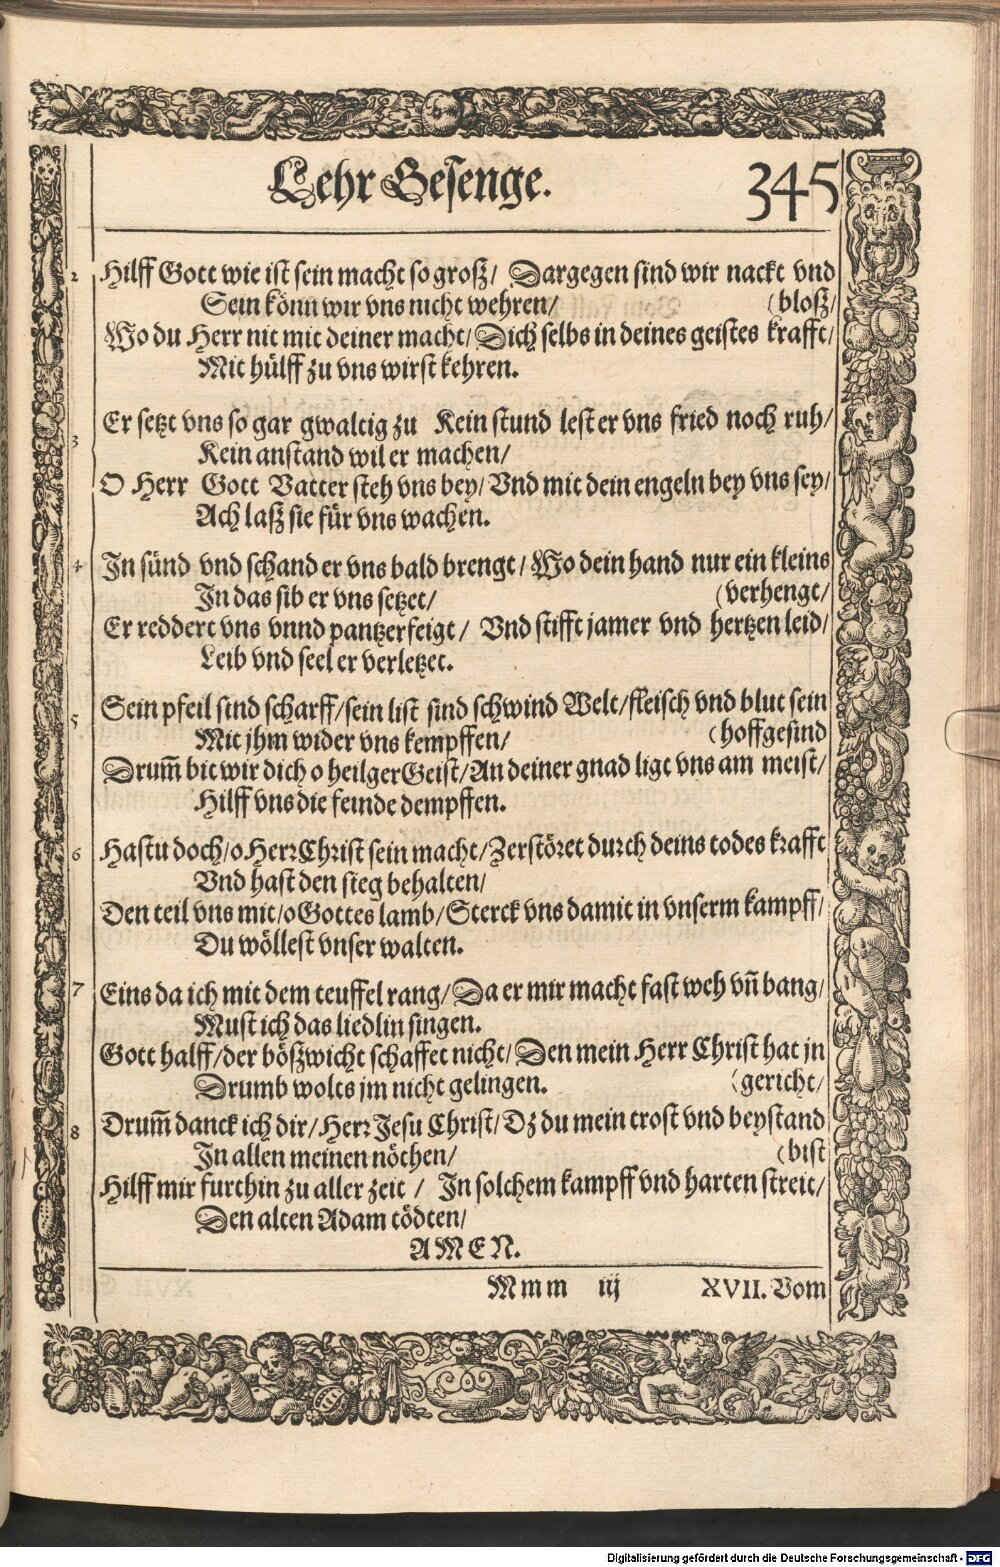 Lehr Gesenge. 345
2 Hilff Gott wie ist sein macht so groß/ Dargegen sind wir nackt vnd
Sein könn wir vns nicht wehren/ (bloß/
Wo du Herr nit mit deiner macht/ Dich selbs in deines geistes krafft/
Mit hülff zu vns wirst kehren.
3 Er setzt vns so gar gwaltig zu Kein stund lest er vns fried noch ruh/
Kein anstand wil er machen/
O Herr Gott Vatter steh vns bey/ Vnd mit dein engeln bey vns sey/
Ach laß sie für vns wachen.
4 In sünd vnd schand er vns bald brengt/ Wo dein hand nur ein kleins
In das sib er vns setzet/ (verhengt/
Er reddert vns vnnd pantzerfeigt/ Vnd stifft jamer vnd hertzen leid/
Leib vnd seel er verletzet.
5 Sein pfeil sind scharff/sein list sind schwind Welt/fleisch vnd blut sein
Mit jhm wider vns kempffen/ (hoffgesind
Drum̃ bit wir dich o heilger Geist/An deiner gnad ligt vns am meist/
Hilff vns die feinde dempffen.
6 Hastu doch/o Herr Christ sein macht/Zerstöret durch deins todes krafft
Vnd hast den sieg behalten/
Den teil vns mit/o Gottes lamb/Sterck vns damit in vnserm kampff/
Du wöllest vnser walten.
7 Eins da ich mit dem teuffel rang/Da er mir macht fast weh vn̄ bang/
Must ich das liedlin singen.
Gott halff/der bößwicht schaffet nicht/Den mein Herr Christ hat jn
Drumb wolts jm nicht gelingen. (gericht/
8 Drum̃ danck ich dir/Herr Jesu Christ/Dz du mein trost vnd beystand
In allen meinen nöthen/ (bist
Hilff mir furthin zu aller zeit/ In solchem kampff vnd harten streit/
Den alten Adam tödten/
AMEN.
Mmm iij XVII. Vom
Digitalisierung gefördert durch die Deutsche Forschungsgemeinschaft - DFG